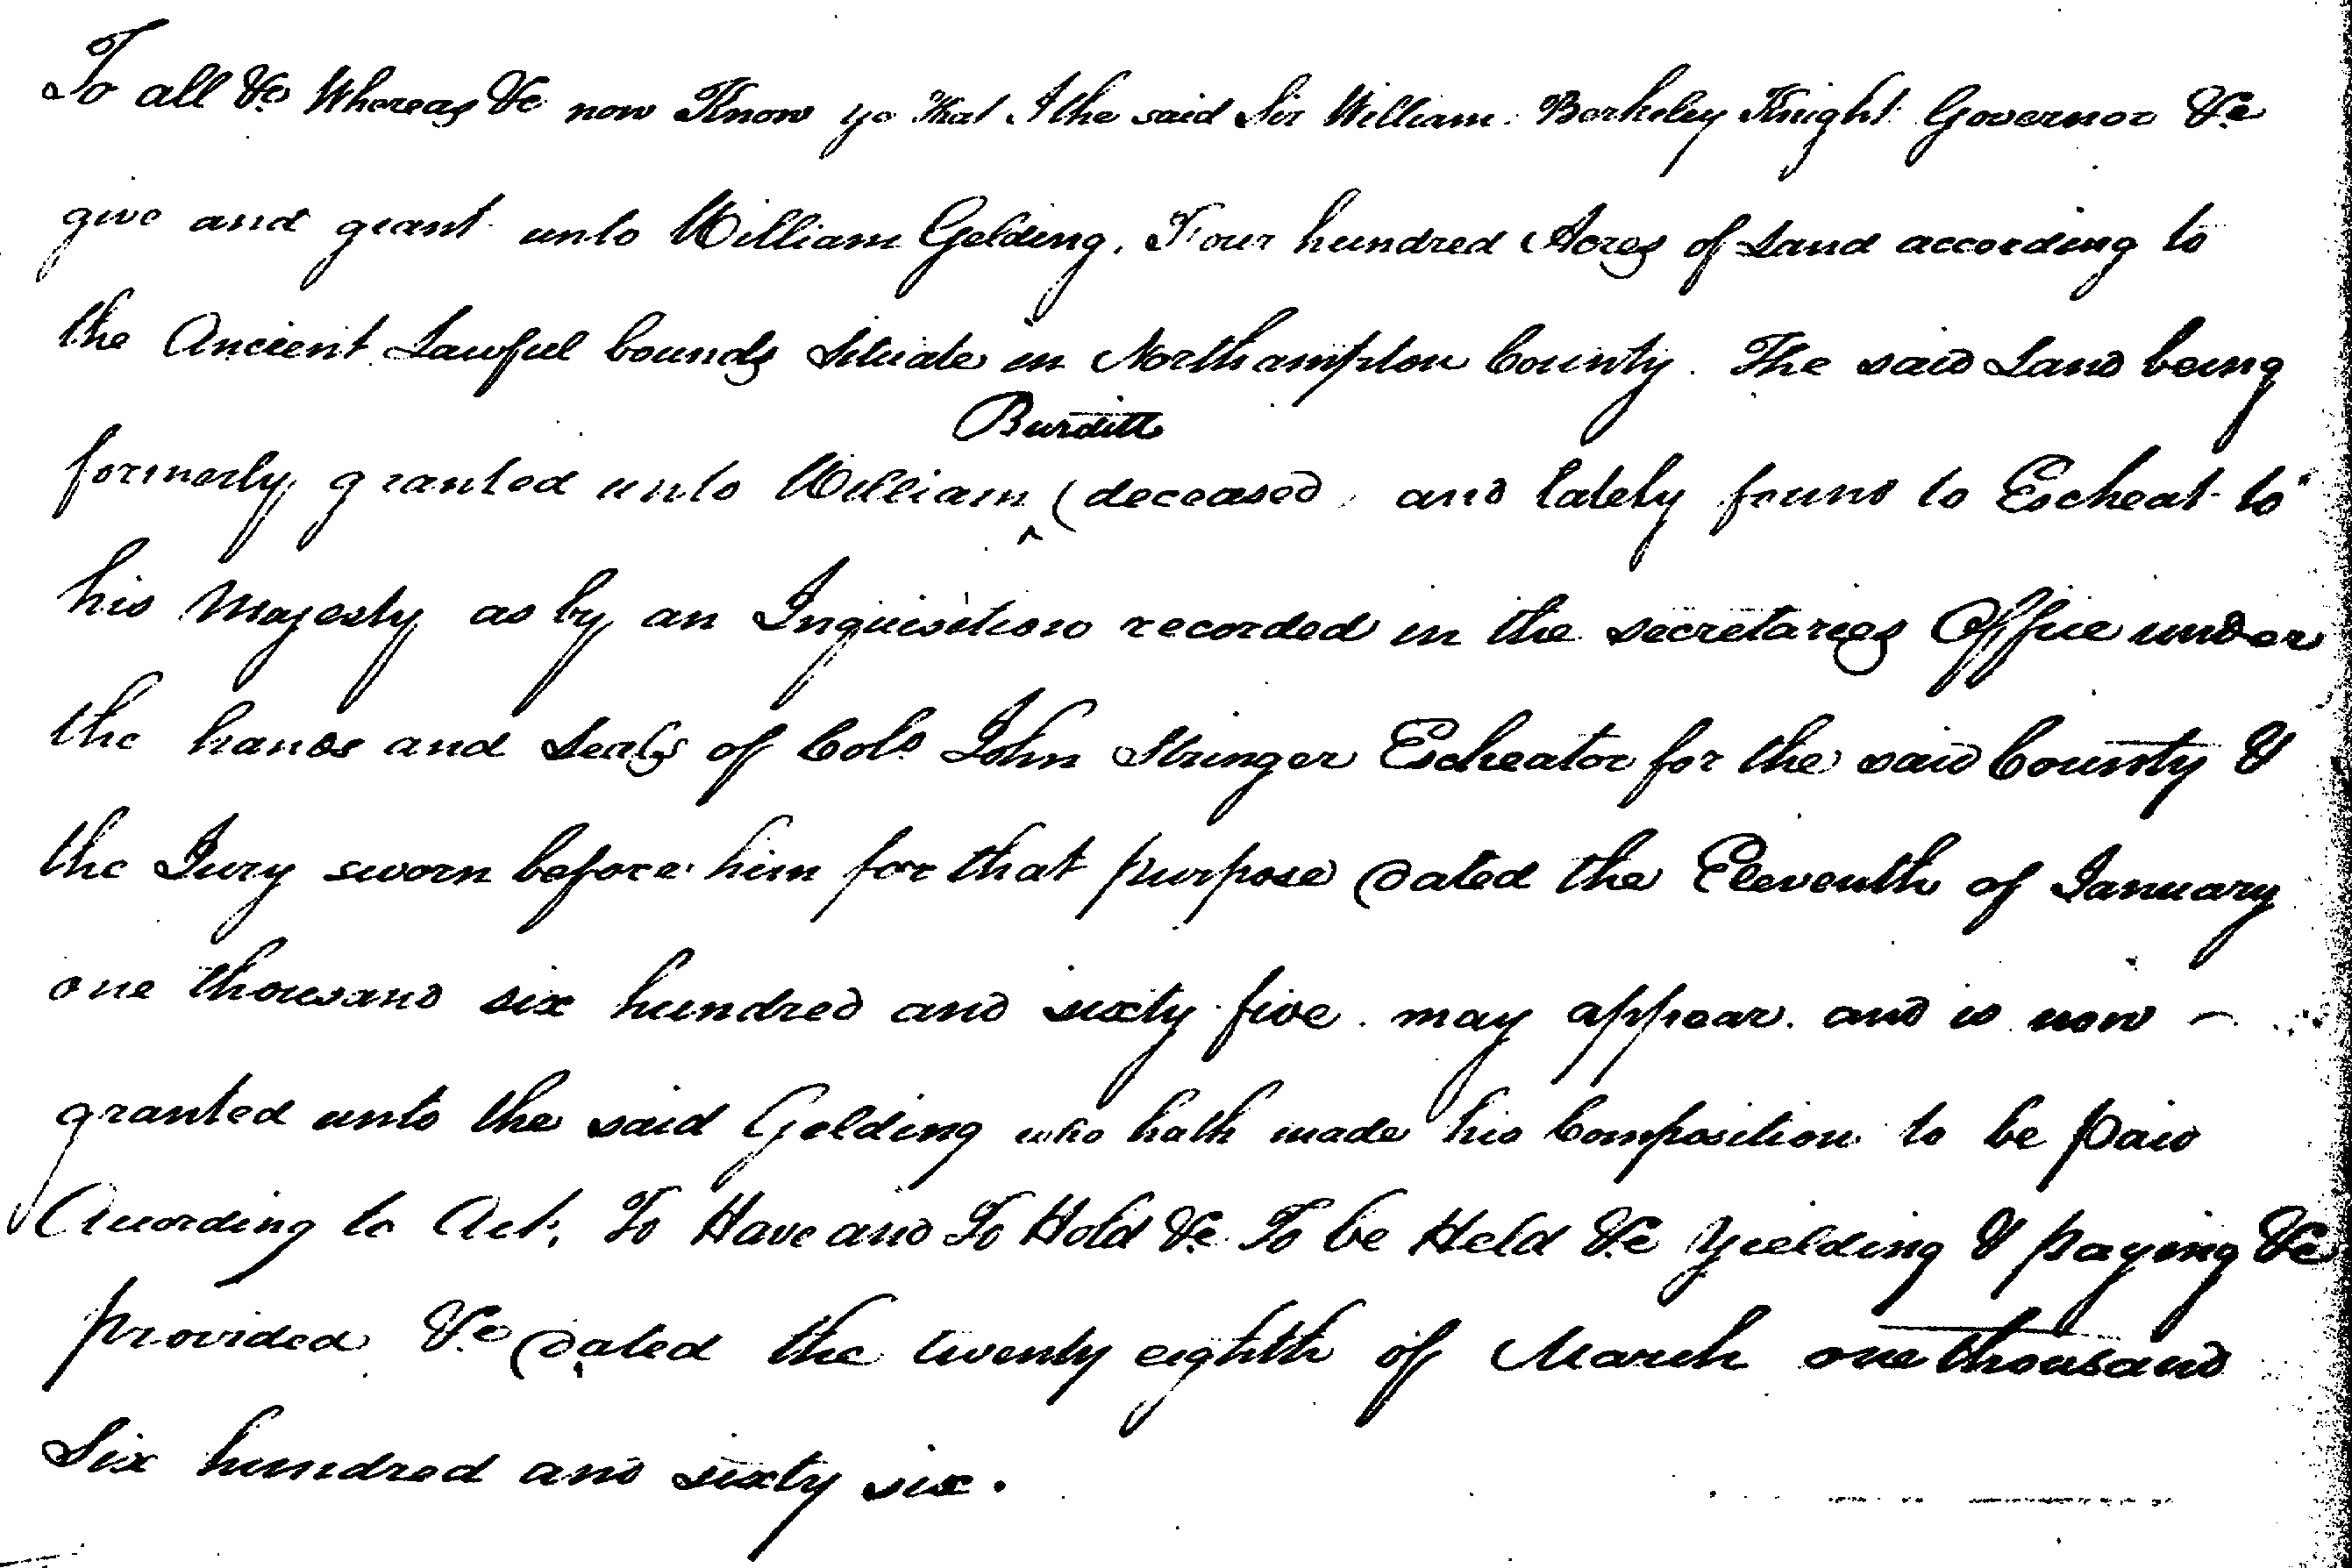 To all &c Whereas &c now Know ye That I the said Sir William Berkeley Knight Governor &c
give and grant unto William Gelding. Four hundred Acres of Land according to
the Ancient Lawful bounds Situate in Northampton County. The said Land being
Burditt
formerly granted unto William ^ (deceased, and lately found to Escheat to
his Majesty as by an Inquisition recorded in the secretaries Office under
the hands and Seals of Colo. John Stringer Escheator for the said County &
the Jury sworn before him for that purpose dated the Eleventh of January
one thousand six hundred and sixty five. may appear. and is now
granted unto the said Gelding who hath made his Composition to be paid
According to Act, To Have and To Hold &c To be Held &c Yielding & paying &c
provided &c dated the twenty eighth of March one thousand
Six hundred and sixty six.